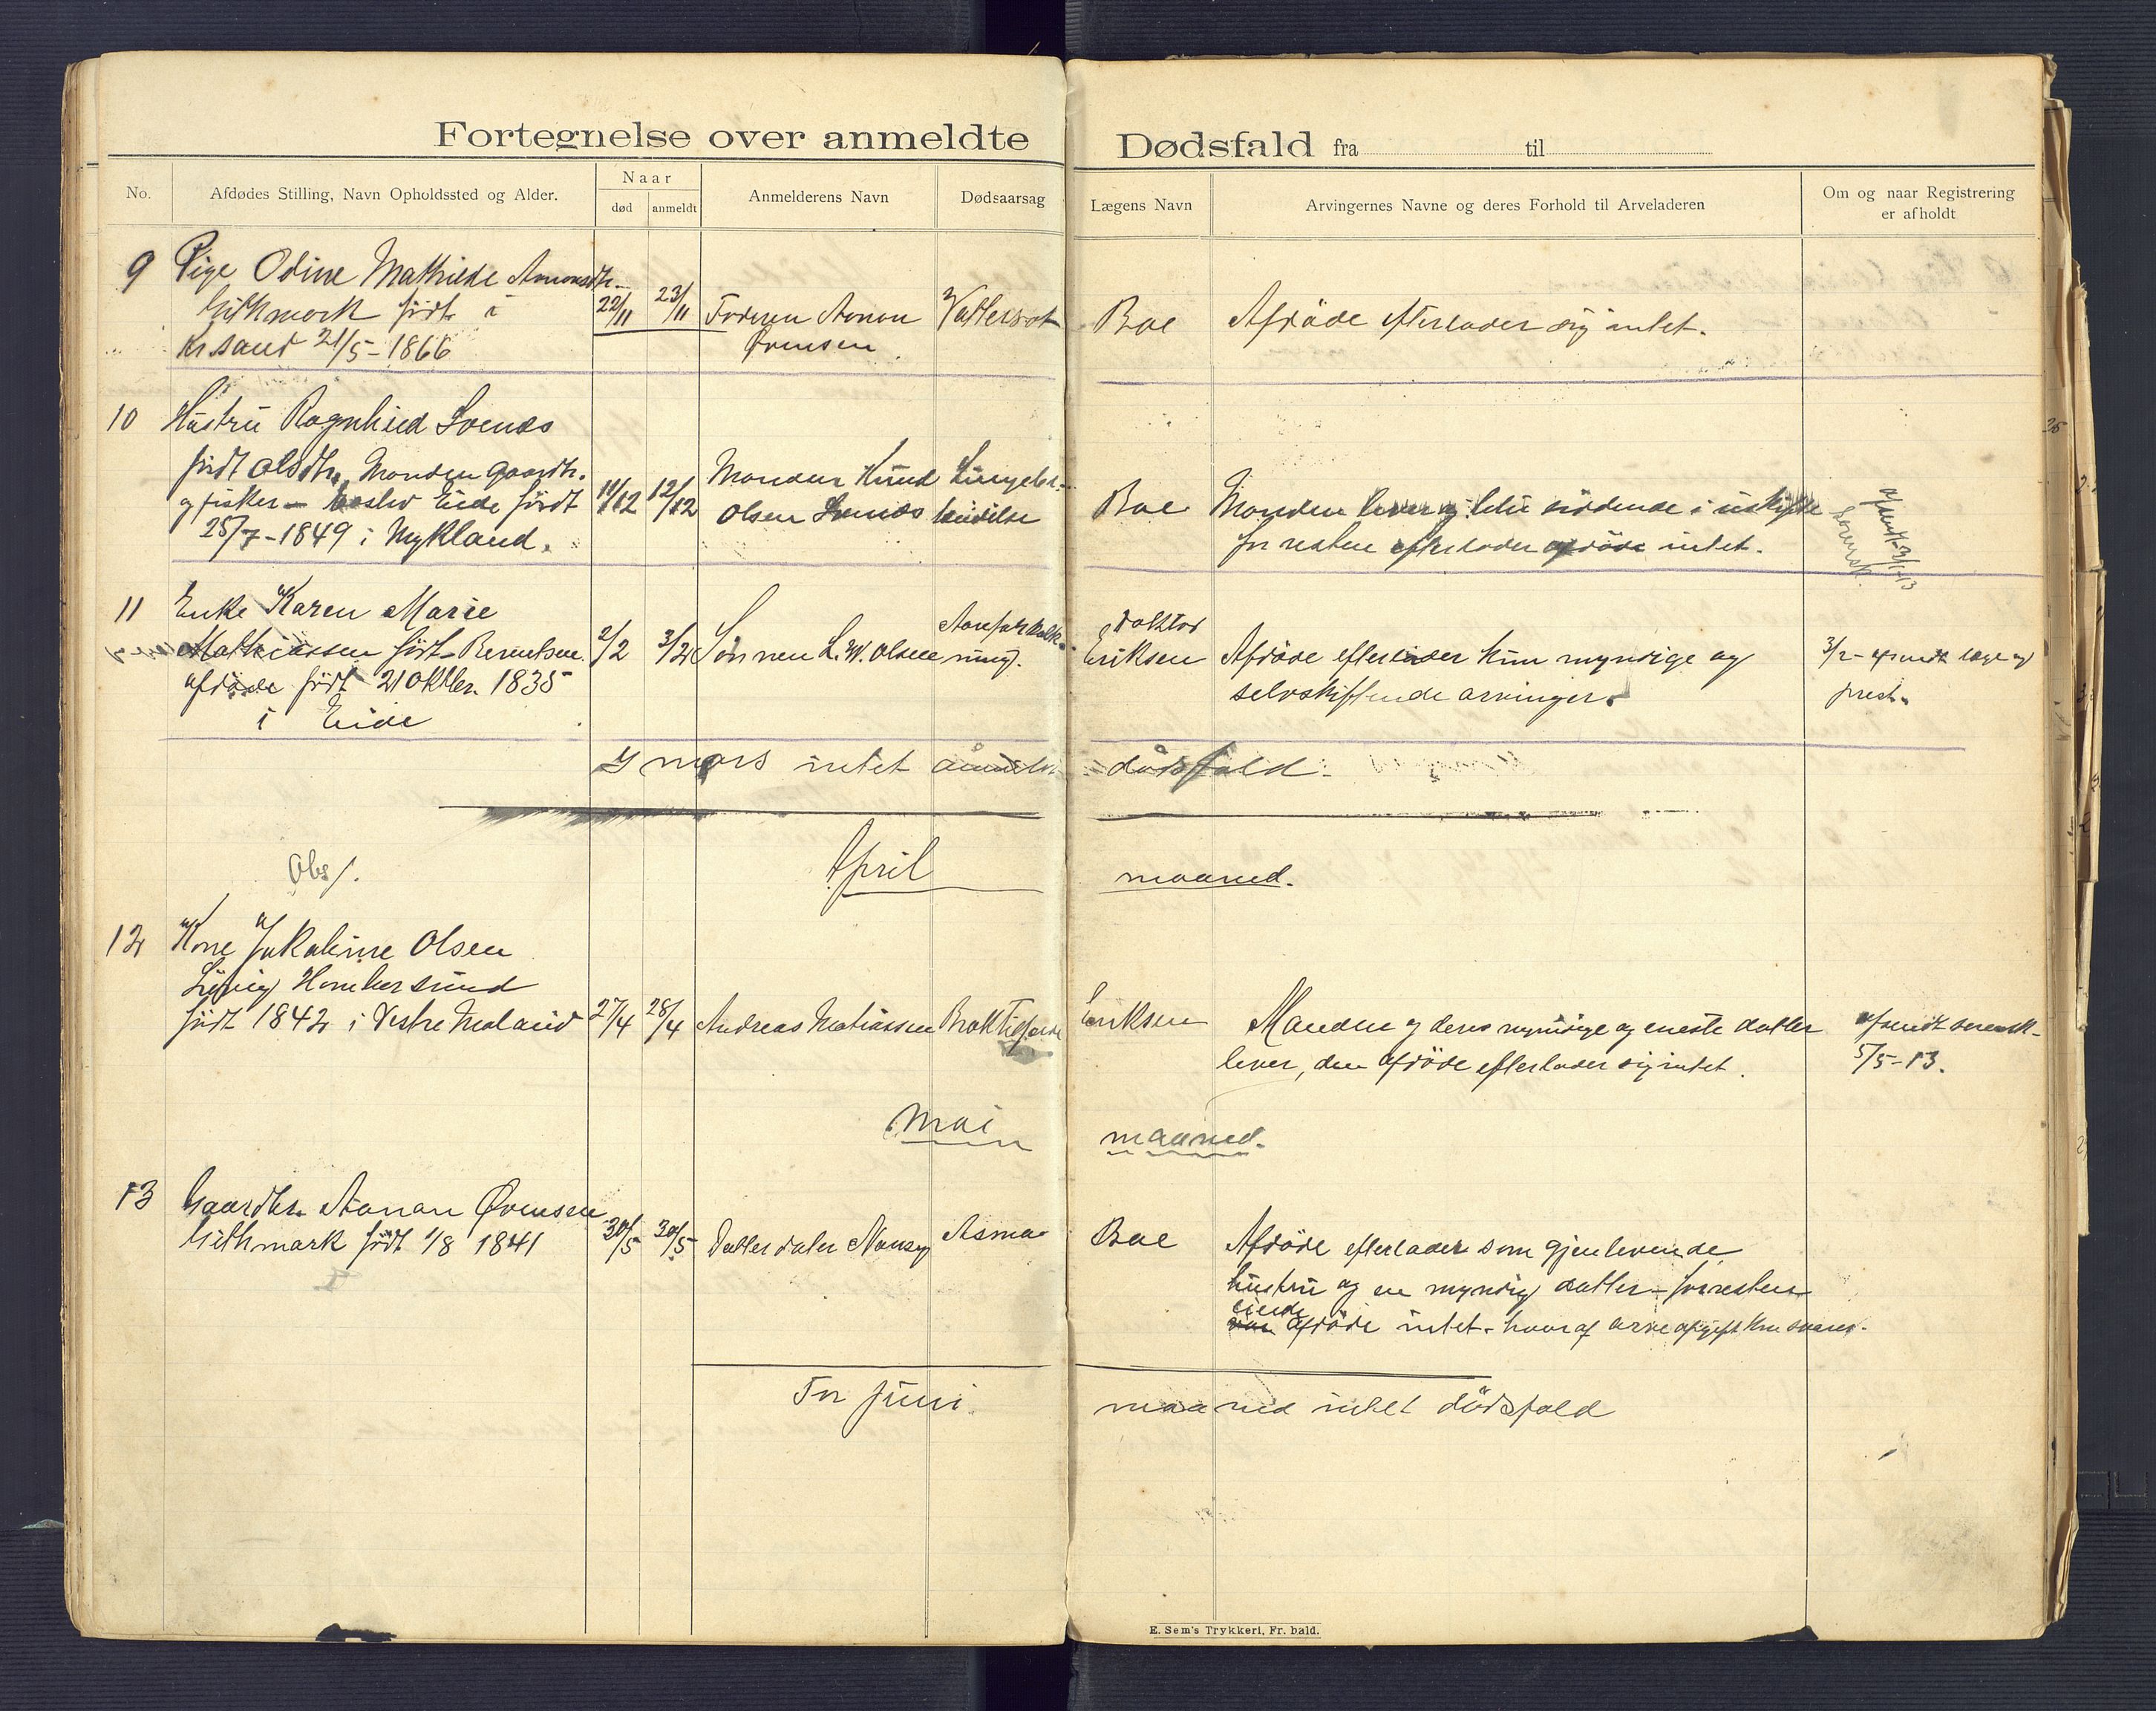 Fortegnelse over anmeldte Dødsfald fra til
No.
Afdødes Stilling, Navn Opholdssted og Alder.
Naar
død
anmeldt
Anmelderens Navn
Dødsaarsag
Lægens Navn
Arvingernes Navne og deres Forhold til Arveladeren
Om og naar Registrering
er afholdt
9 Pige Odine Mathilde
født i
Krsand 21/5-1866
22/11 23/11
Faderen Aanon
Øvensen
Vattersot
Boe
Afdøde efterlader sig intet.
10 Hustru Ragnhild
født Olsdtr. Manden Gaardbr.
og fisker - Eide født
25/7-1849 i Mykland.
11/12 12/12
Manden Knud
Olsen
Boe
Manden lever og blir siddende i uskifte
for resten efterlader afdøde intet.
11 Enke Karen Marie
Mathiassen født Berentsen
afdøde født 21 Oktbr. 1835
i Eide
2/2 3/2
Sønnen L. W. Olsen
Aareforkalk-
ning.
doktor
Eriksen
Afdøde efterlader kun myndige og
selvskiftende arvinger.
3/2- afsendt læge og
prest.
I mars intet anmeldt dødsfald.
Obs/.
April maaned.
12 Kone Jakobine Olsen
Homborsund
født 1842 i Vestre Moland
27/4 28/4
Andreas Matiassen
Eriksen
Manden og dens myndige og eneste datter
lever, den afdøde efterlader sig intet.
afsendt sorensk-
5/5-13.
Mai maaned.
13 Gaardbr. Aanon Øvensen
født 1/8 1841
30/5 30/5
Datterdatter Nansy
Asma
Boe
Afdøde efterlader som gjenlevende
hustru og en myndig datter - forresten
eiede
afdøde intet. hvoraf arveafgift kan svares.
For Juni maaned intet dødsfald
E. Sem's Trykkeri, Fr. hald.